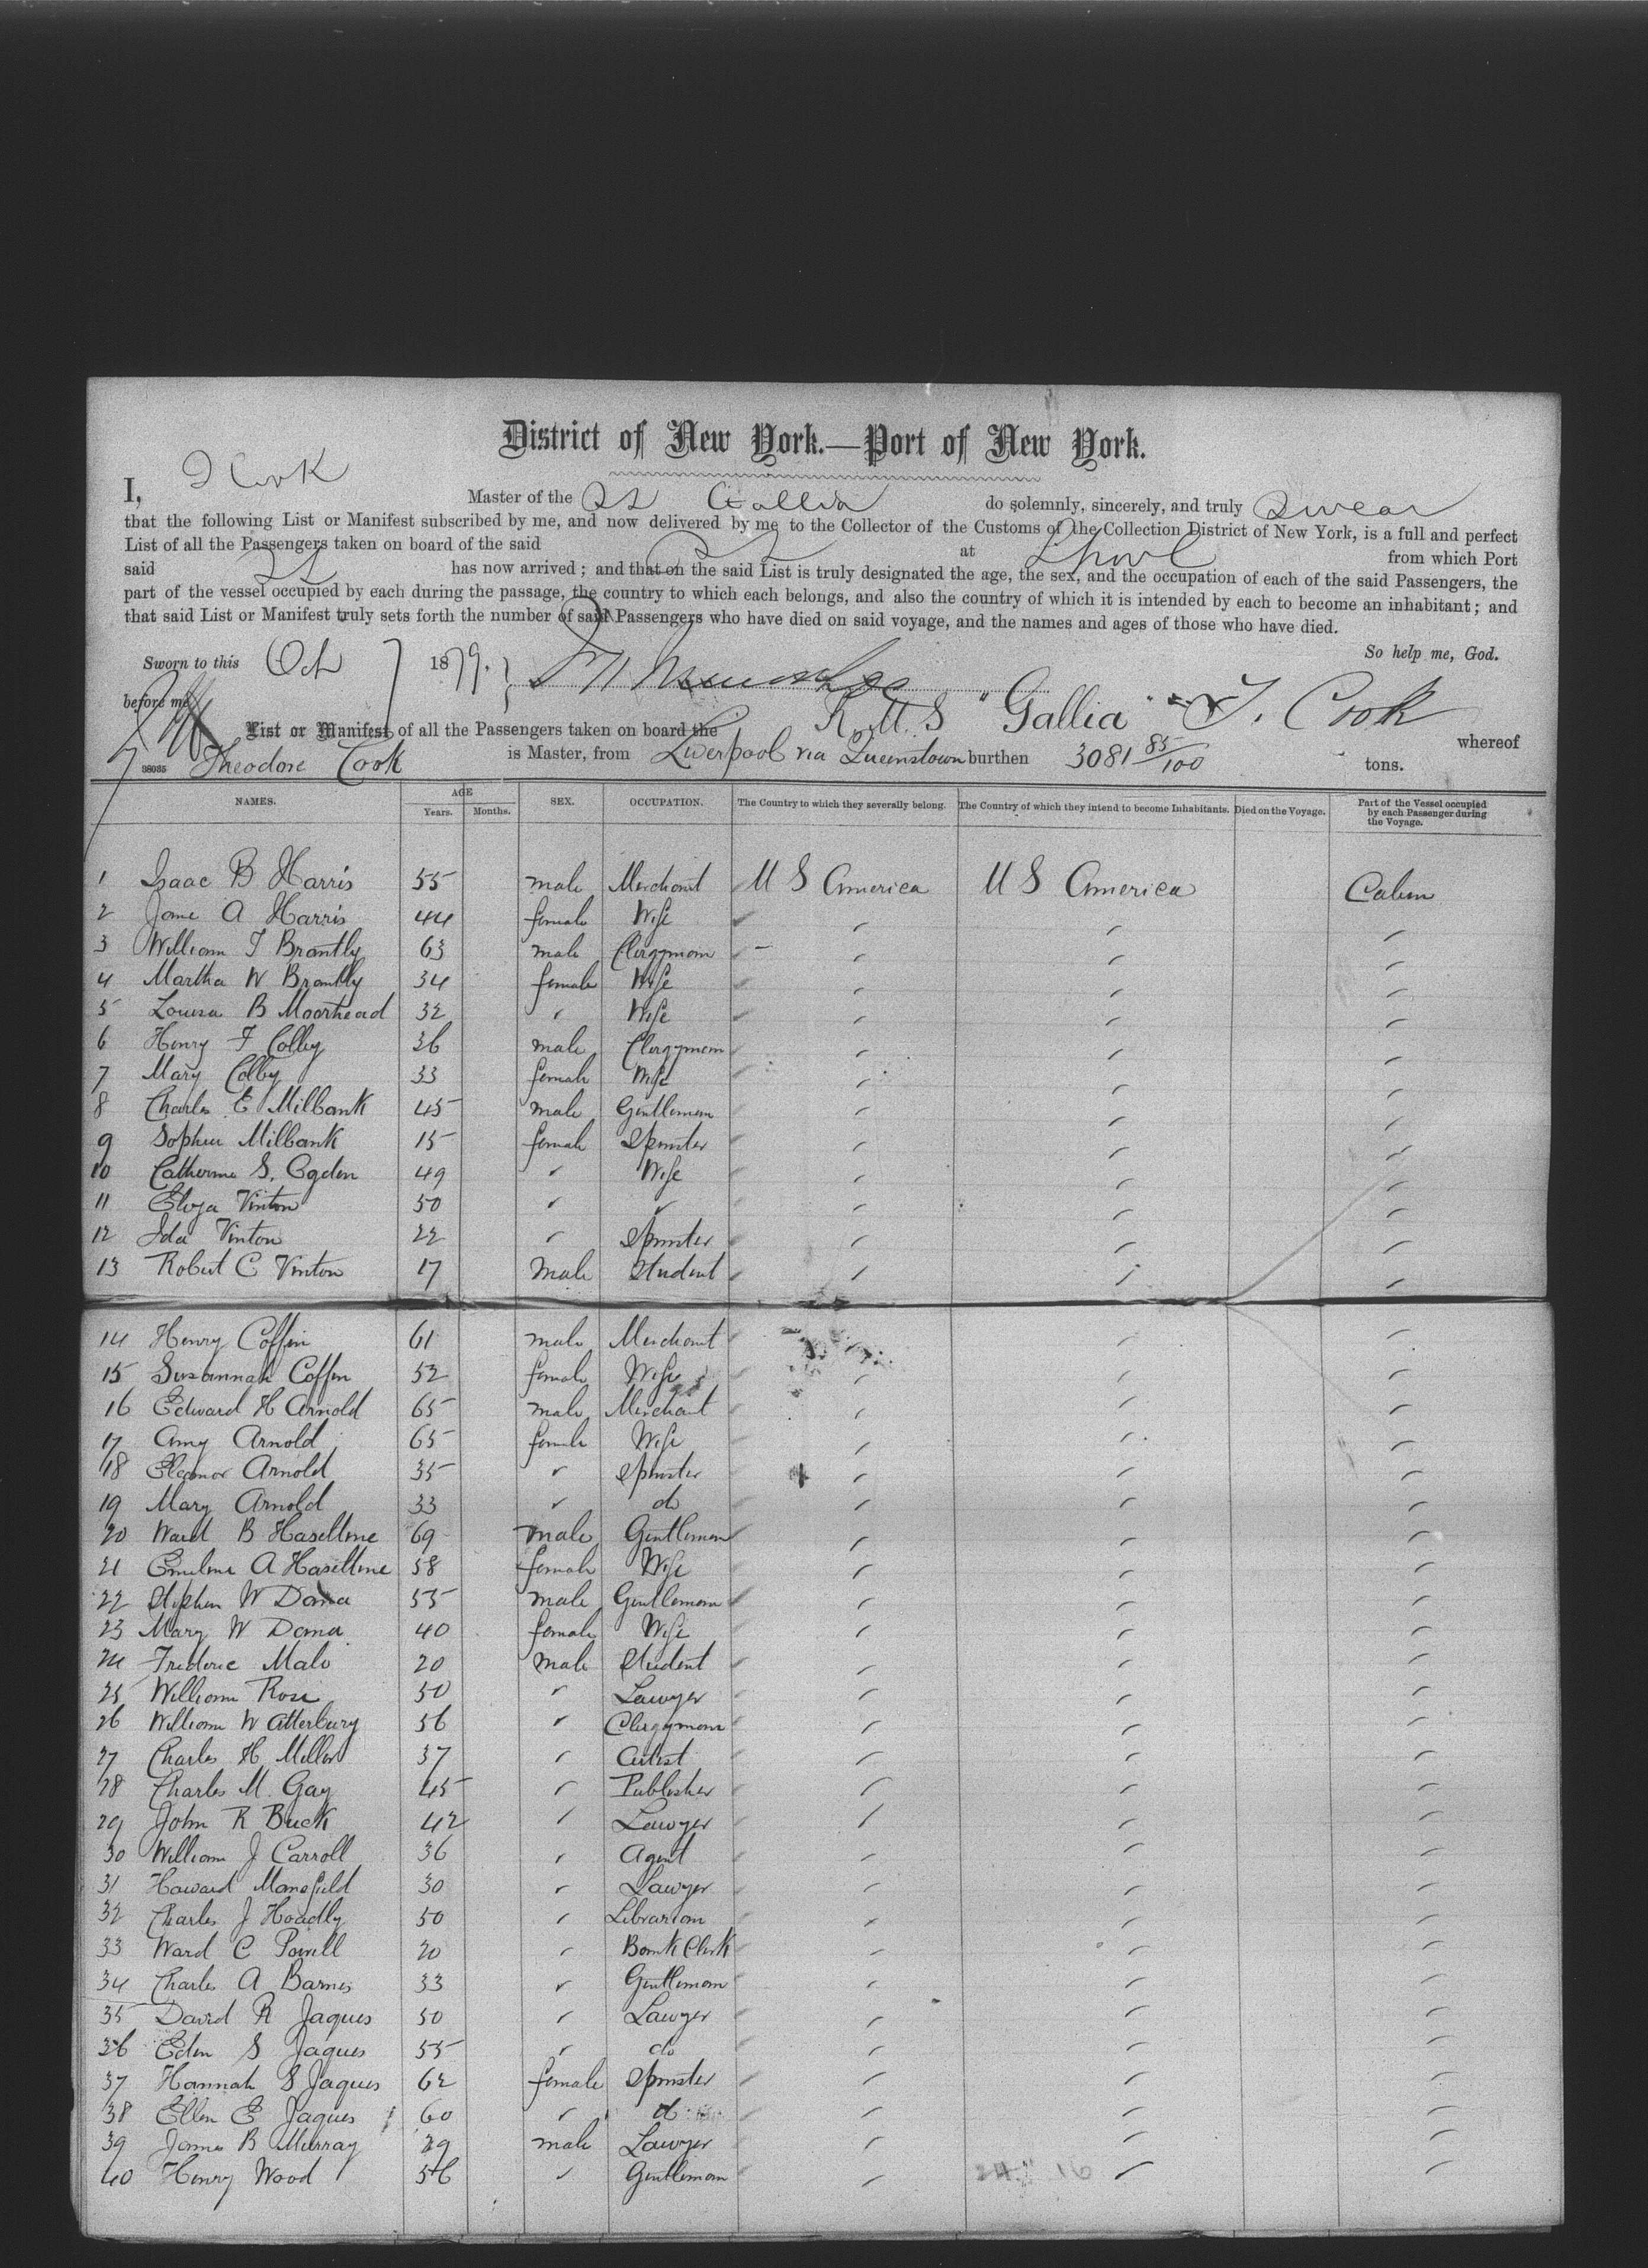 District of New York.—Port of New York.
I, T Cook Master of the SS Gallia do solemnly, sincerely, and truly swear
that the following List or Manifest subscribed by me, and now delivered by me to the Collector of the Customs of the Collection District of New York, is a full and perfect
List of all the Passengers taken on board of the said at Lpool from which Port
said SS has now arrived; and that on the said List is truly designated the age, the sex, and the occupation of each of the said Passengers, the
part of the vessel occupied by each during the passage, the country to which each belongs, and also the country of which it is intended by each to become an inhabitant; and
that said List or Manifest truly sets forth the number of said Passengers who have died on said voyage, and the names and ages of those who have died.
So help me, God.
Sworn to this Oct 7 1879.
before me
List or Manifest of all the Passengers taken on board the R.M.S "Gallia" T. Cook whereof
38035 Theodore Cook is Master, from Liverpool via Queenstown burthen 3081 85/100 tons.
NAMES. AGE Years. Months. SEX. OCCUPATION. The Country to which they severally belong. The Country of which they intend to become Inhabitants. Died on the Voyage. Part of the Vessel occupied by each Passenger during the Voyage.
1 Isaac B Harris 55 male Merchant U S America U S America Cabin
2 Jane A Harris 44 female Wife
3 William T Brantly 63 male Clergyman
4 Martha W Brantly 34 female Wife
5 Louisa B Moorhead 32 " Wife
6 Henry F Colby 36 male Clergyman
7 Mary Colby 33 female Wife
8 Charles E Milbank 45 male Gentleman
9 Sophia Milbank 15 female Spinster
10 Catherine S. Ogden 49 " Wife
11 Eliza Vinton 50 " "
12 Ida Vinton 22 " Spinster
13 Robert C Vinton 17 Male Student
14 Henry Coffin 61 male Merchant
15 Susannah Coffin 52 female Wife
16 Edward H Arnold 65 male Merchant
17 Amy Arnold 65 female Wife
18 Eleanor Arnold 35 " Spinster
19 Mary Arnold 33 " do
20 Ward B Haseltine 69 male Gentleman
21 Emeline A Haseltine 58 female Wife
22 Stephen W Dana 55 male Gentleman
23 Mary W Dana 40 female Wife
24 Frederic Mali 20 male Student
25 William Rose 50 " Lawyer
26 William W Atterbury 56 " Clergyman
27 Charles H Miller 37 " Artist
28 Charles M. Gay 45 " Publisher
29 John R Buck 42 " Lawyer
30 William J Carroll 36 " Agent
31 Howard Mansfield 30 " Lawyer
32 Charles J Hoadly 50 " Librarian
33 Ward C Powell 20 " Bank Clerk
34 Charles A Barnes 33 " Gentleman
35 David R Jaques 50 " Lawyer
36 Eden S Jaques 55 " do
37 Hannah S Jaques 62 female Spinster
38 Ellen E Jaques 60 " do
39 James B Murray 29 male Lawyer
40 Henry Wood 56 " Gentleman